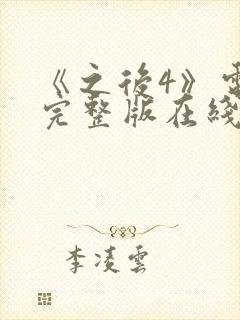 《之後4》電
完整版在綫
李凌雲